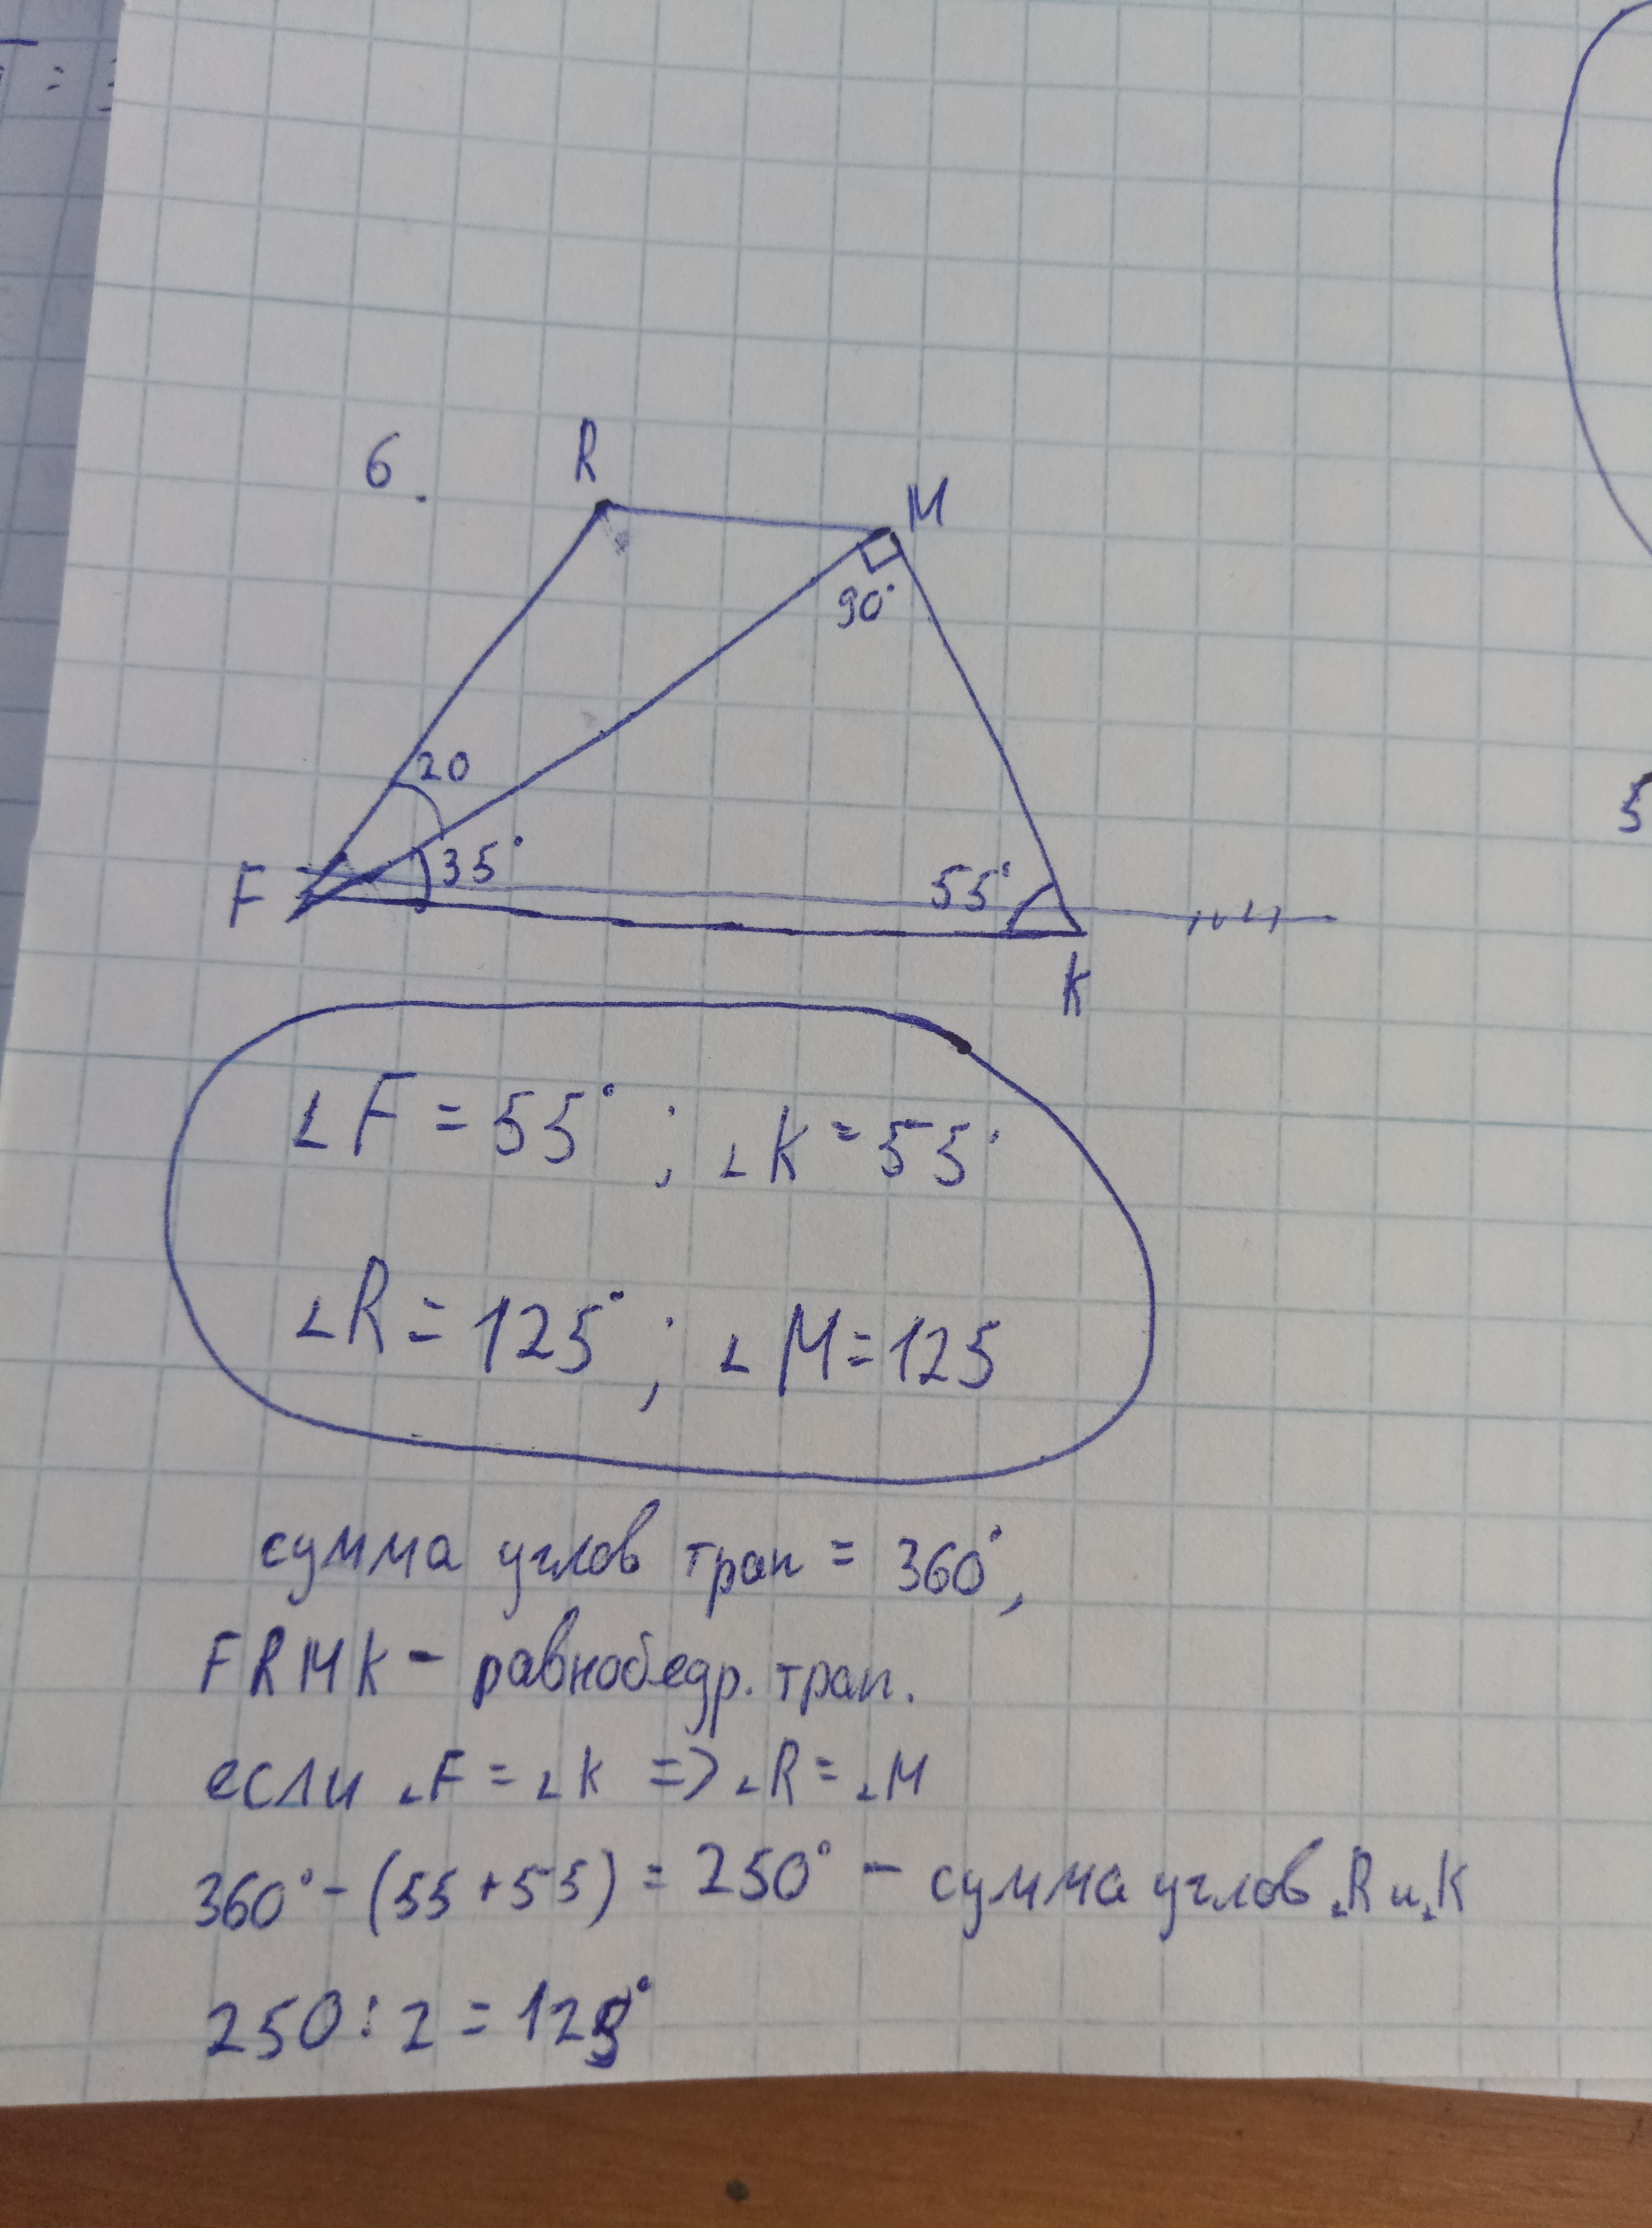 6.
R
M
90°
20
35°
55°
F
K
∠F = 55° ; ∠K = 55°
∠R = 125° ; ∠M = 125
сумма углов трап = 360°,
FRMK - равнобедр. трап.
если ∠F = ∠K => ∠R = ∠M
360° - (55 + 55) = 250° - сумма углов ∠R и ∠K
250 : 2 = 125°
5